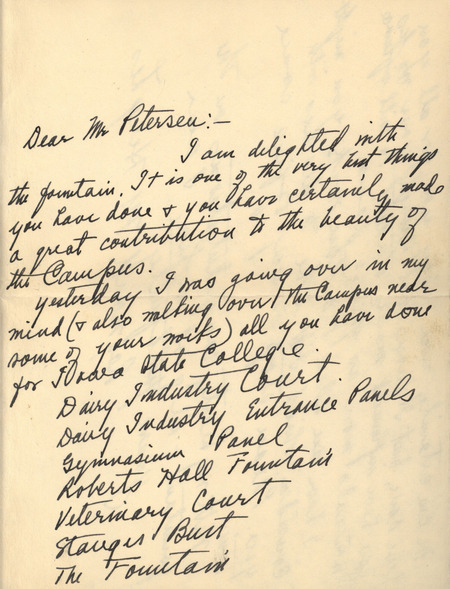 Dear Mr Petersen:—
I am delighted with
the fountain. It is one of the very best things
you have done & you have certainly made
a great contribution to the beauty of
the Campus.
yesterday I was going over in my
mind (& also walking over the Campus near
some of your works) all you have done
for Iowa State College.
Dairy Industry Court
Dairy Industry Entrance Panels
Gymnasium Panel
Roberts Hall Fountain
Veterinary Court
Stanges Bust
The Fountain